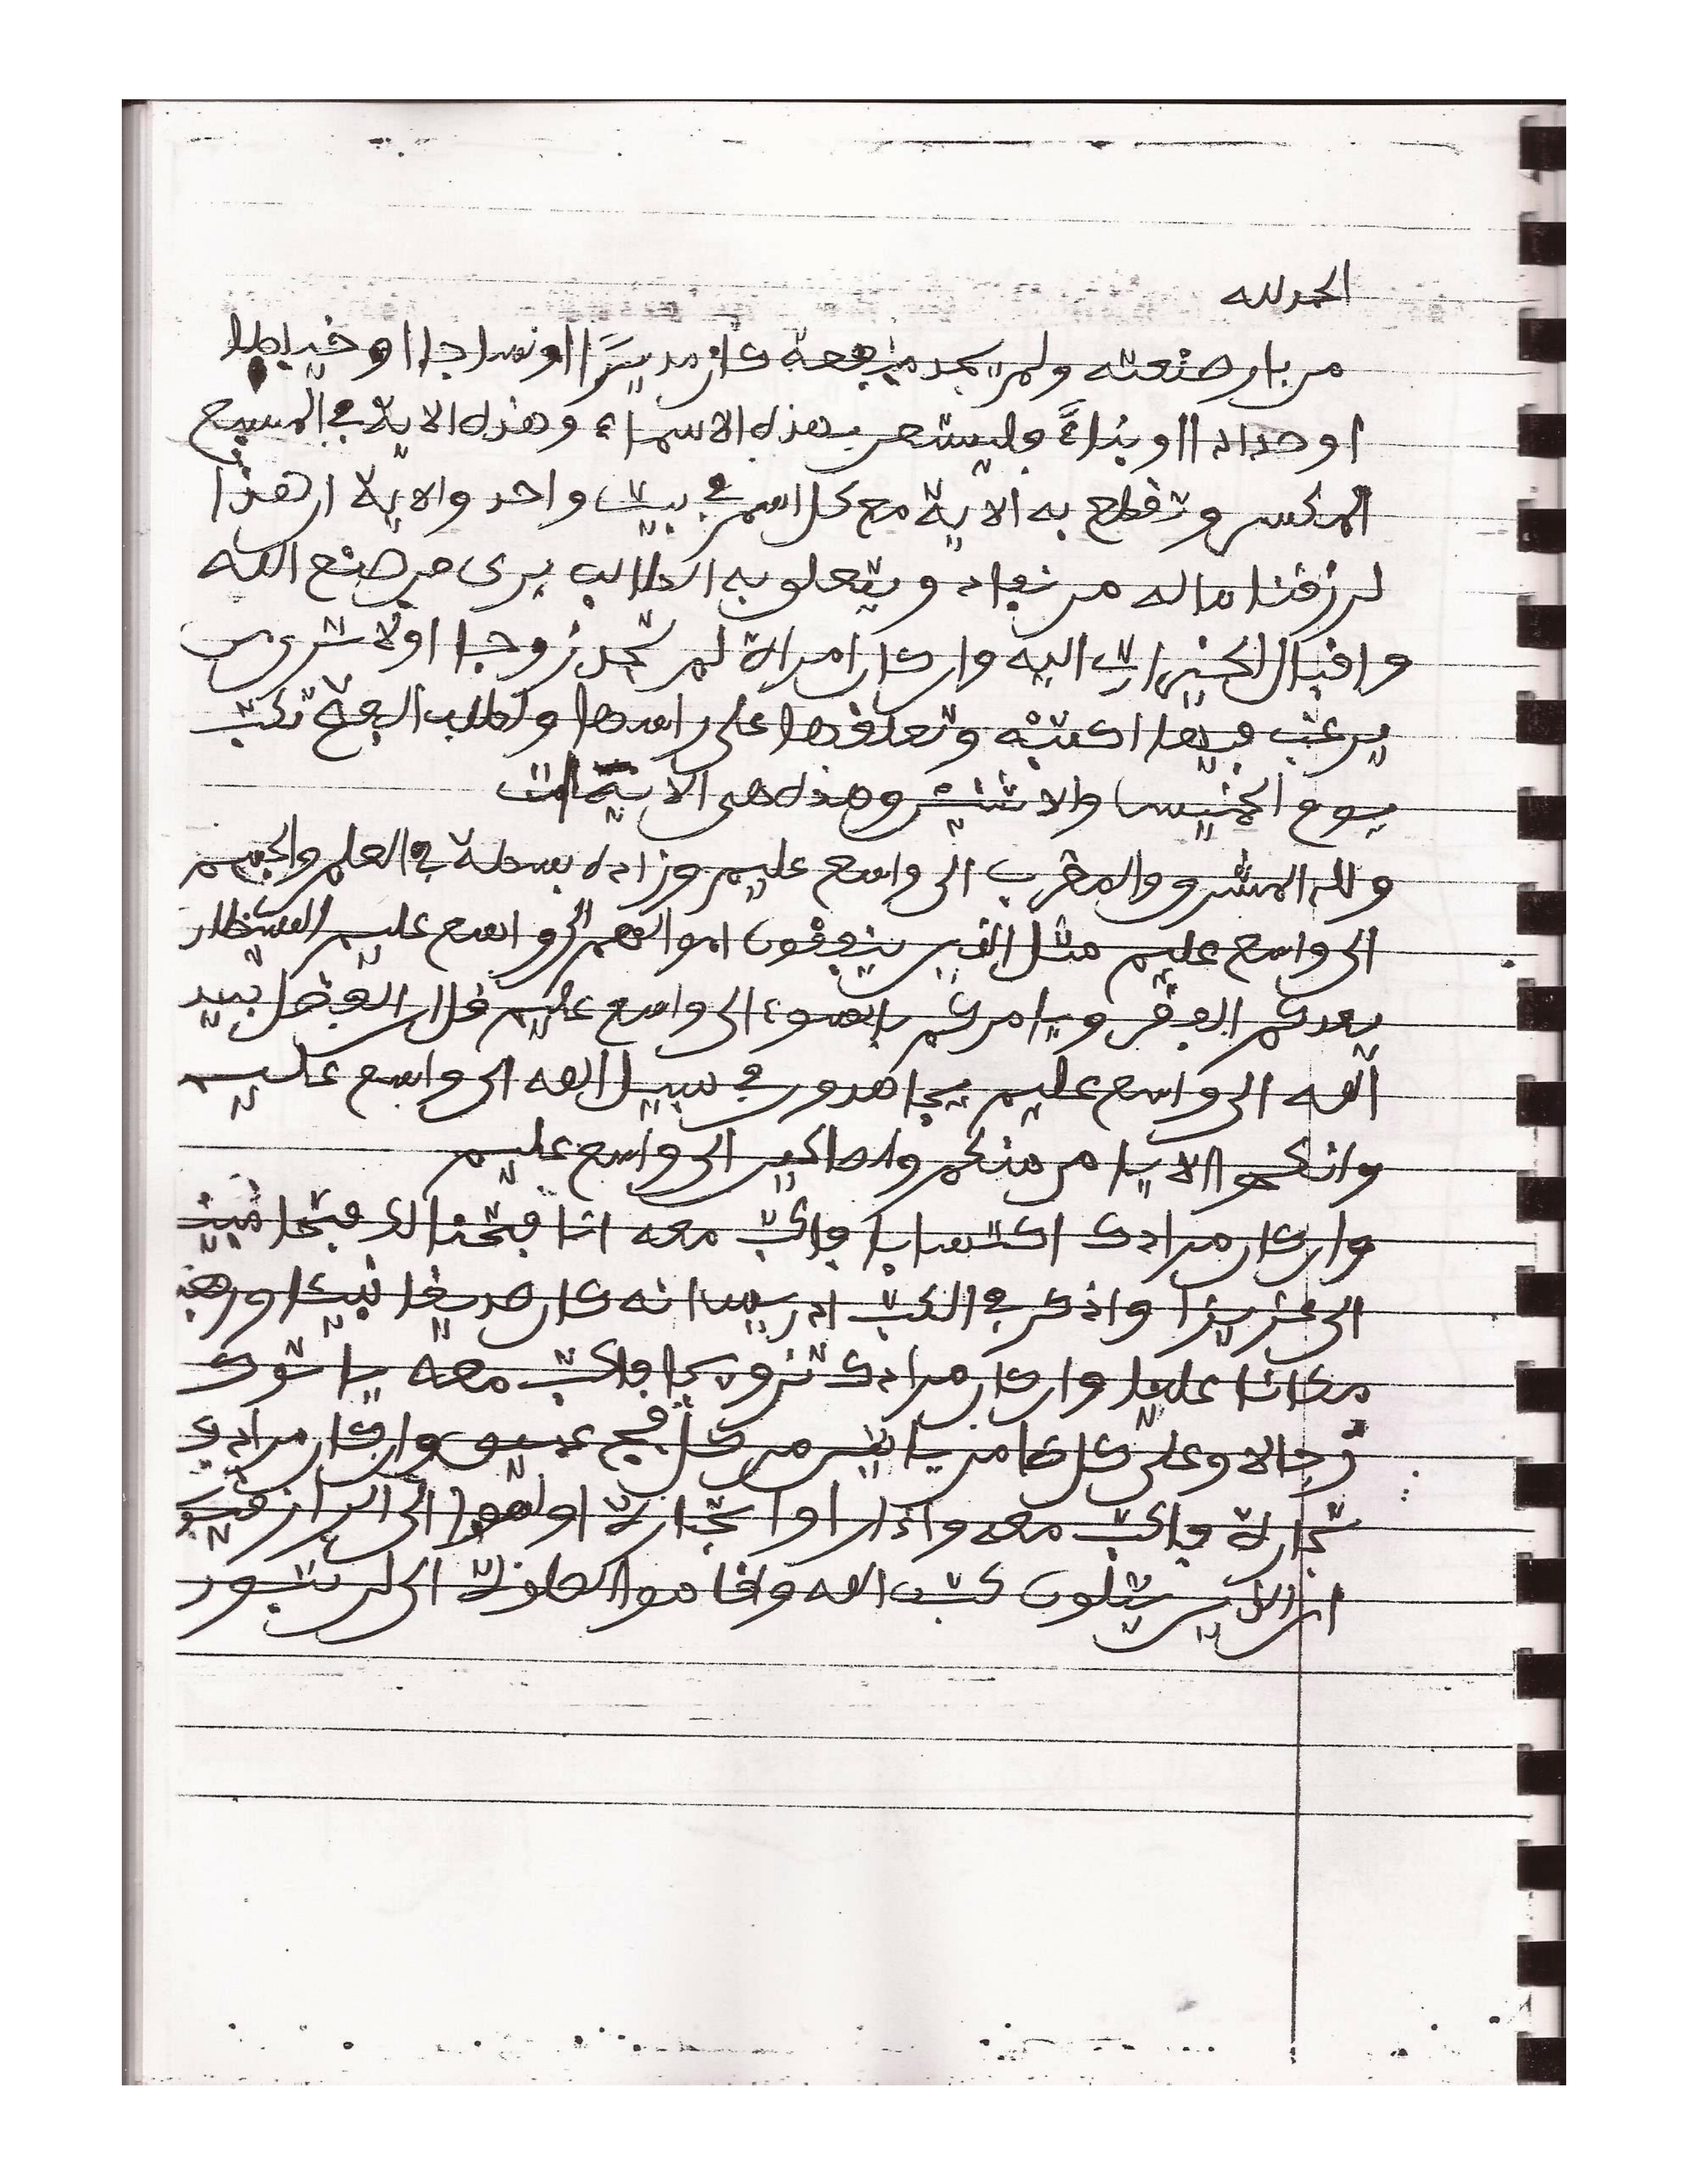 الحمد لله
من بار صنعته ولم يجد منفعة كان مديرًا او نساجا او خياطا
او حدادا او بناءً فليستعن بهذه الاسماء وهذه الاية في المسبع
المكسر وتقطع به الاية مع كل اسم في بيت واحد والاية ان هذا
لرزقنا ماله من نفاد ويتعلق به الطالب يرى من صنع الله
واقبال الخيرات اليه وان كان امراة لم تجد زوجا اولا شريس
يرغب فيها اكتبه وتعلقها على راسها ولطلب البيع تكتب
يوم الخميس والاثنين وهذه هي الاية
ولله المشرق والمغرب الى واسع عليم وزاده بسطة في العلم والجسم
الى واسع عليم مثل الذين ينفقون اموالهم الى واسع عليم الشيطان
يعدكم الفقر ويامركم بالسوء الى واسع عليم قل ان الفضل بيد
الله الى واسع عليم يجاهدون في سبيل الله الى واسع عليم
وانكحوا الايامى منكم والصالحين الى واسع عليم
وان كان مرادك اكتسابا فاكتب معه انا فتحنا لك فتحا مبينا
الى عزيزا واذكر في الكتب ادريس انه كان صديقا نبيئا ورفعنه
مكانا عليا وان كان مرادك تزويجا فاكتب معه ياتوك
رجالا وعلى كل ضامر ياتين من كل فج عميق وان كان مرادك
تجارة فاكتب معه واذا راوا تجارة او لهوا الى الرازقين
ان الذين يتلون كتب الله واقاموا الصلوة الى لن تبور